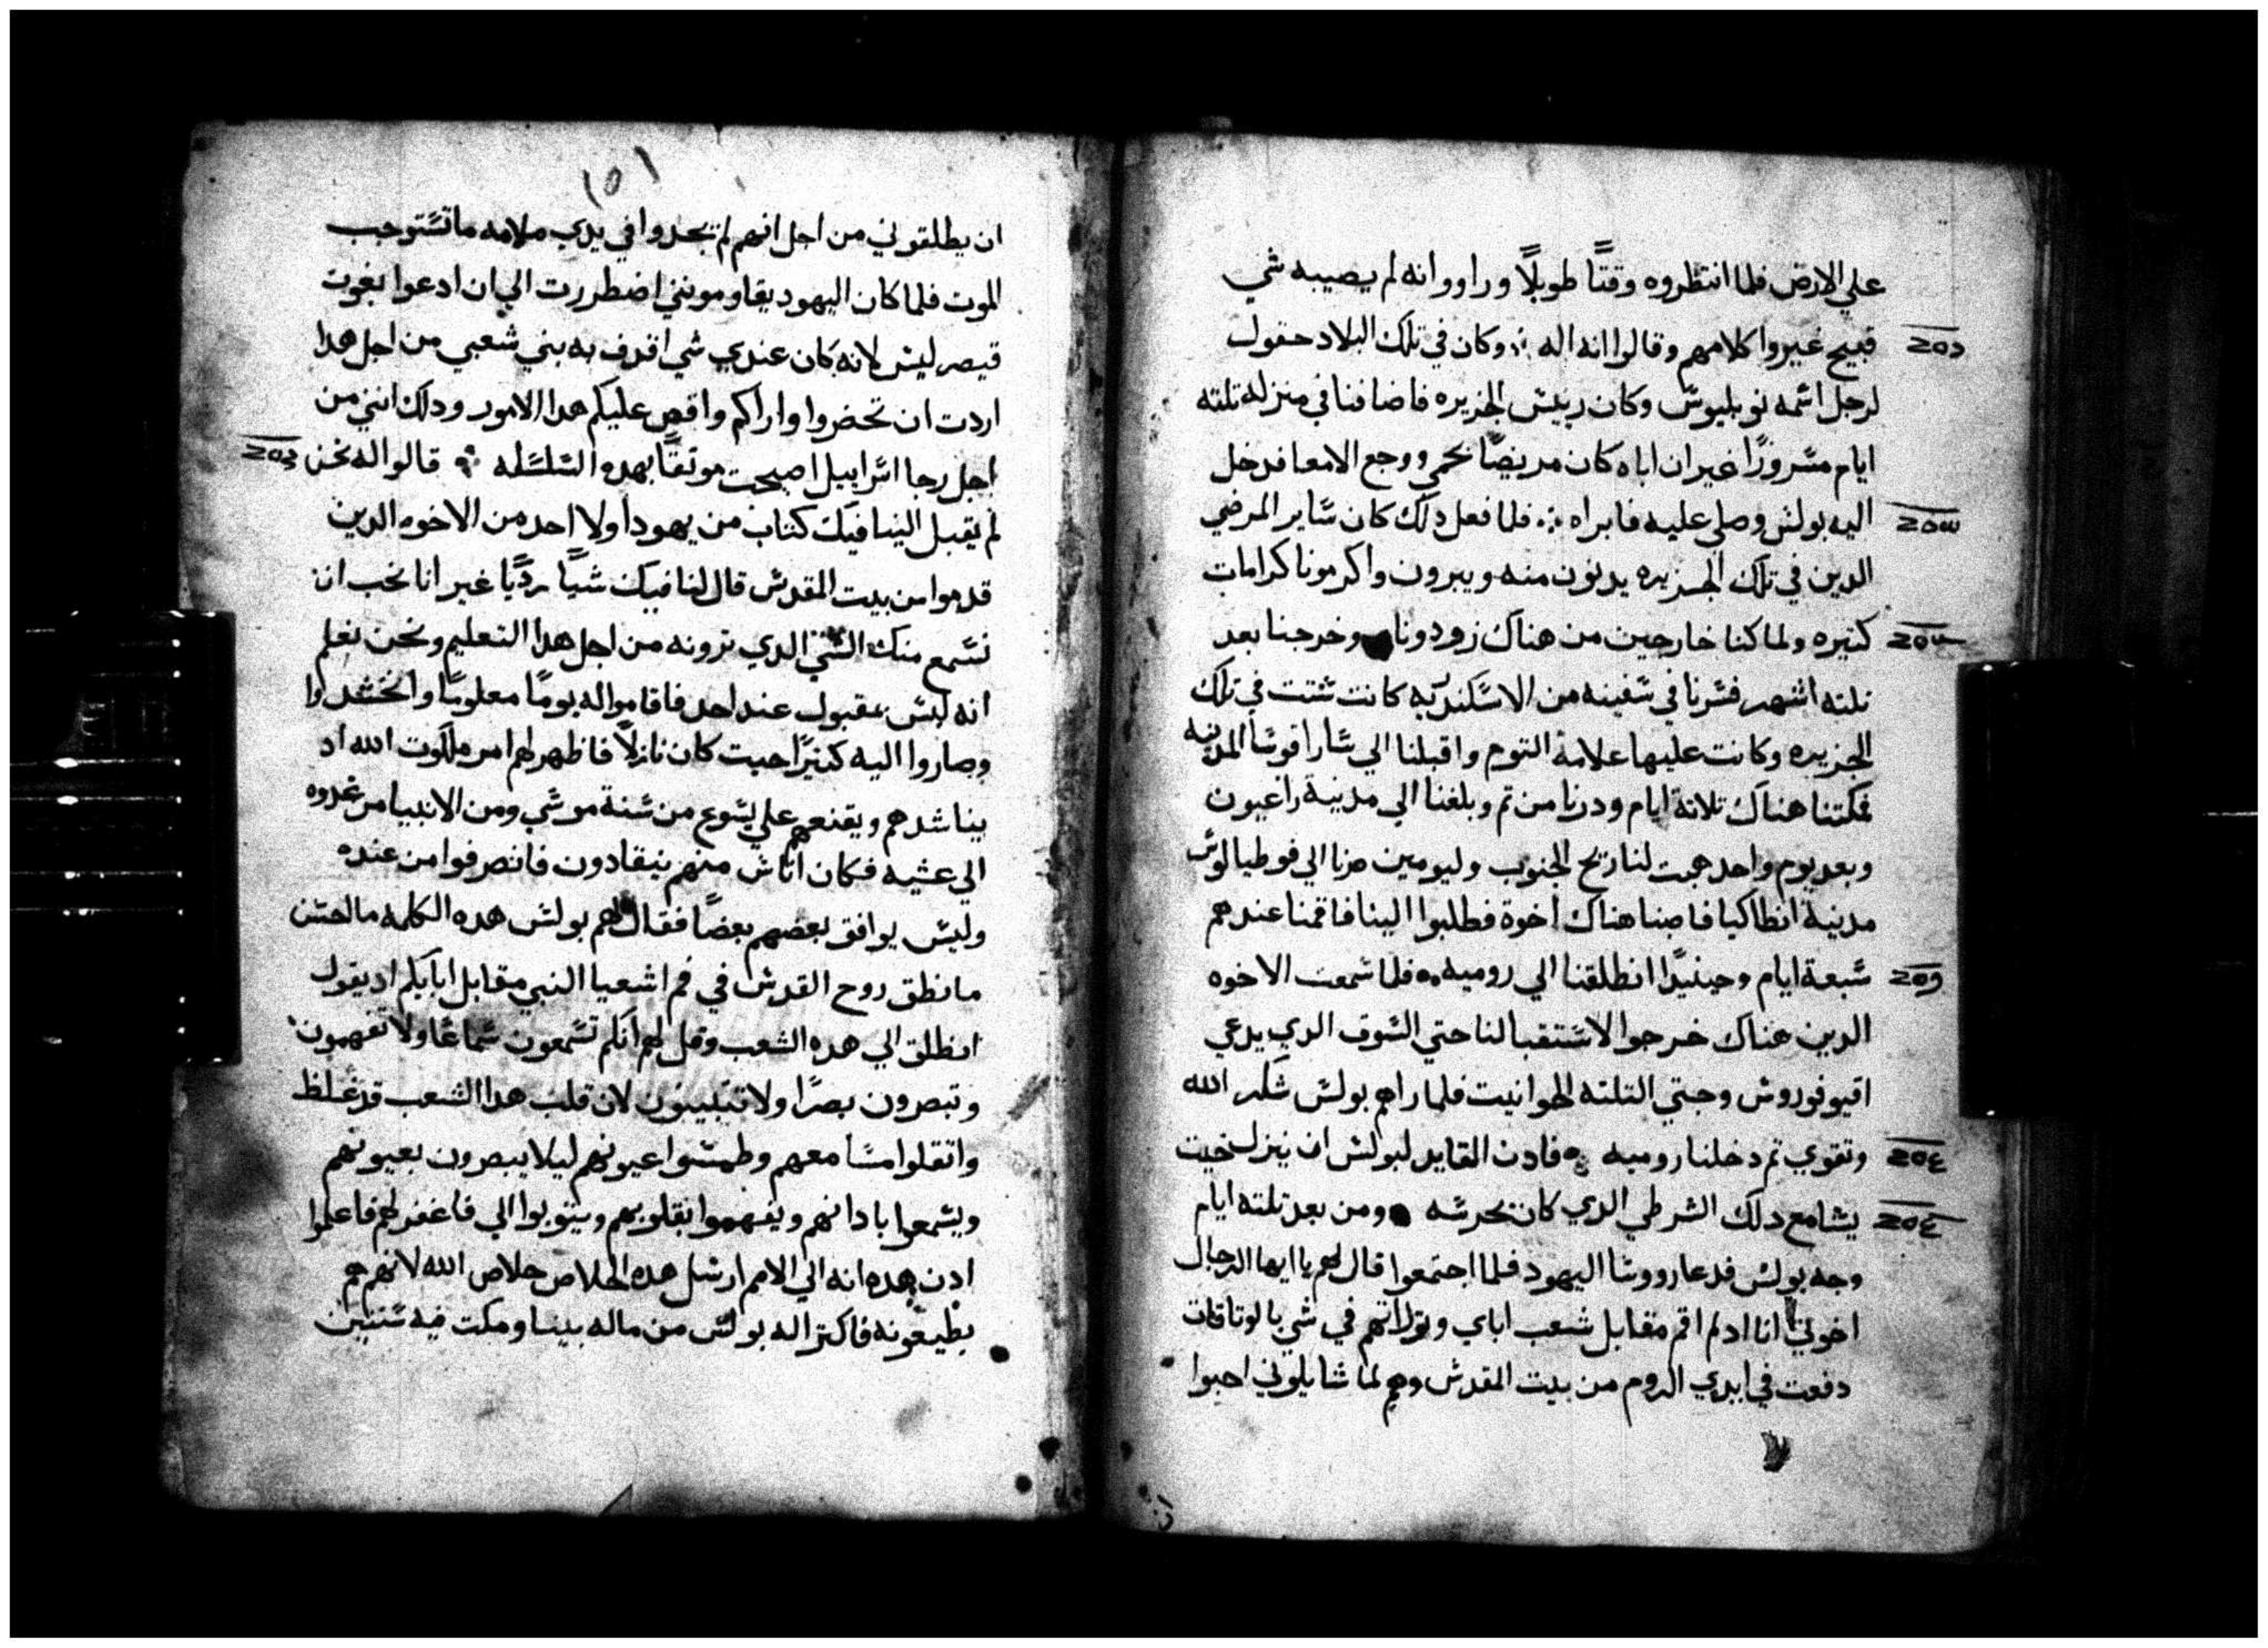 علي الارض فلما انتظروه وقتًا طويلًا وراووا انه لم يصيبه شي
قبيح غيروا كلامهم وقالوا انه اله وكان في تلك البلاد حقول
لرجل اسمه نوبليوس وكان رييس الجزيره فاضافنا في منزله تلته
ايام مسرورًا غير ان اباه كان مريضًا بحمي ووجع الامعا فدخل
اليه بولس وصلي عليه فابراه فلما فعل دلك كان ساير المرضي
الدين في تلك الجزيره يدنون منه ويبرون واكرمونا كرامات
كتيره ولما كنا خارجين من هناك زودونا وخرجنا بعد
تلته اشهر فسرنا في سفينه من الاسكندريه كانت شتت في تلك
الجزيره وكانت عليها علامة التوم واقبلنا الي ساراقوسا المدينه
فمكتنا هناك تلاتة ايام ودرنا من تم وبلغنا الي مدينة راغيون
وبعد يوم واحد هبت لنا ريح الجنوب وليومين صرنا الي فوطيالوس
مدينة انطاكيا فاصبنا هناك اخوة فطلبوا الينا فاقمنا عندهم
سبعة ايام وحينيدًا انطلقنا الي روميه فلما سمعت الاخوه
الدين هناك خرجوا لاستقبالنا حتي السوق الدي يدعي
افيوفوروس وحتي التلته الحوانيت فلما راهم بولس شكر الله
وتقوي تم دخلنا روميه فادن القايد لبولس ان ينزل حيت
يشا مع دلك الشرطي الدي كان يحرسه ومن بعد تلته ايام
وجه بولس فدعا رووسا اليهود فلما اجتمعوا قال لهم يا ايها الرجال
اخوتي انا اد لم اقم مقابل شعب اباي وتوراتهم في شي بالوتاقات
دفعت في ايدي الروم من بيت المقدس وهم لما سايلوني احبوا
ان
١٥١
ان يطلقوني من اجل انهم لم يجدوا في يدي ملامه ما تستوجب
الموت فلما كان اليهود يقاومونني اضطررت الي ان ادعوا بغوت
قيصر ليس لانه كان عندي شي اقدف به بني شعبي من اجل هدا
اردت ان تحضروا واراكم واقص عليكم هدا الامور ودلك انني من
اجل رجا اسراييل اصبحت موتقًا بهده السلسله قالوا له نحن
لم يقبل الينا فيك كتاب من يهودا ولا احد من الاخوه الدين
قدموا من بيت المقدس قال لنا فيك شيًا رديًا غير انا نحب ان
نسمع منك الشي الدي ترونه من اجل هدا التعليم ونحن نعلم
انه ليس مقبول عند احد فاقاموا له يومًا معلومًا واتحشدوا
وصاروا اليه كتيرًا حيت كان نازلًا فاظهر لهم امر ملكوت الله اد
يناشدهم ويقنعهم علي يسوع من سنة موسي ومن الانبيا من غدوه
الي عشيه فكان اناس منهم ينقادون فانصرفوا من عنده
وليس يوافق بعضهم بعضًا فقال لهم بولس هده الكلمه ما احسن
ما نطق روح القدس في فم اشعيا النبي مقابل ابايكم اد يقول
انطلق الي هده الشعب وقل لهم انكم تسمعون سماعًا ولا تفهمون
وتبصرون بصرًا ولا تتبينون لان قلب هدا الشعب قد غلظ
واتقلوا مسامعهم وطمسوا عيونهم ليلا يبصرون بعيونهم
ويسمعوا بادانهم ويفهموا بقلوبهم ويتوبوا الي فاغفر لهم فاعلموا
ادن هده انه الي الامم ارسل هده الخلاص خلاص الله لانهم هم
يطيعونه فاكترا له بولس من ماله بيتا ومكت فيه سنتين